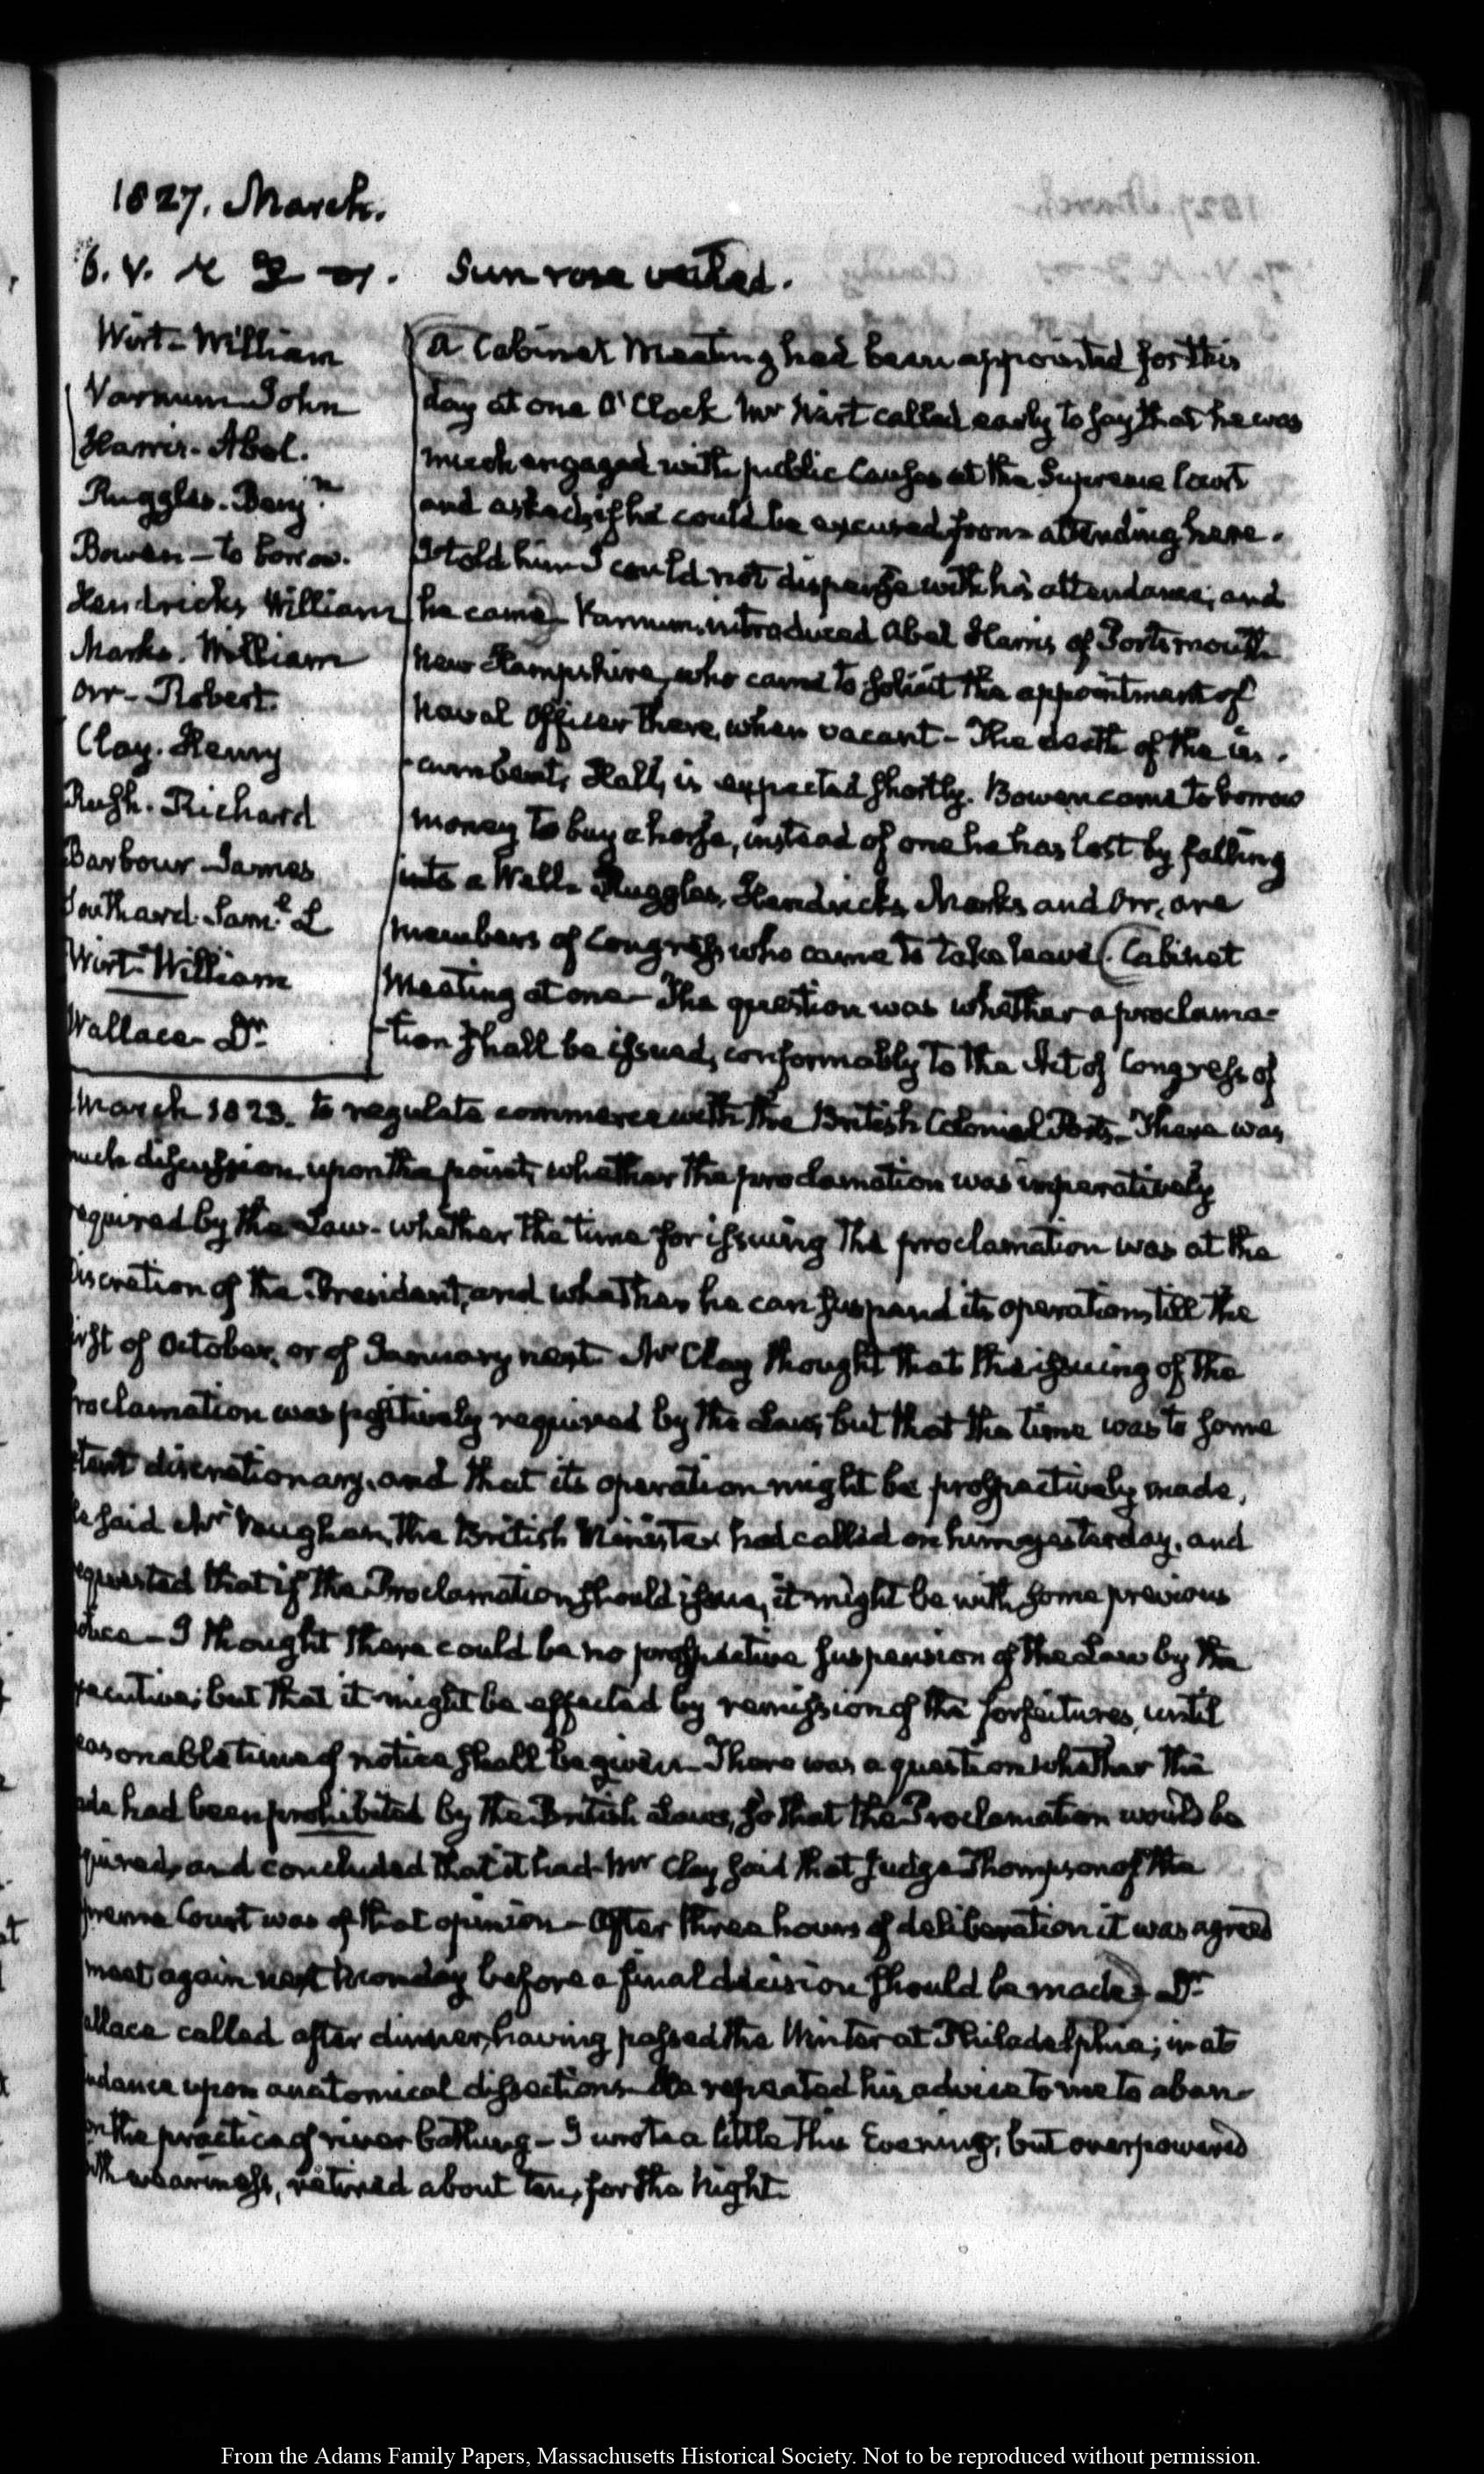 1827. March.
6. V. Sun rose veiled.
Wirt - William
Varnum John
Harris - Abel.
Ruggles. Benj.n
Bowen - to borrow.
Hendricks William
Marks. William
Orr - Robert.
Clay. Henry
Rush. Richard
Barbour James
Southard. Sam.l L
Wirt. William
Wallace - Dr.
(A Cabinet Meeting had been appointed for this
day at one O'Clock Mr Wirt called early to say that he was
much engaged with public Causes at the Supreme Court
and asked, if he could be excused from attending here.
I told him I could not dispense with his attendance; and
he came) Varnum introduced Abel Harris of Portsmouth
New Hampshire, who came to solicit the appointment of
Naval Officer there, when vacant - The death of the in-
-cumbent, Hall, is expected shortly. Bowen came to borrow
money to buy a horse, instead of one he has lost by falling
into a Well - Ruggles, Hendricks, Marks and Orr, are
members of Congress who came to take leave. (Cabinet
Meeting at one - The question was whether a proclama-
-tion shall be issued, conformably to the Act of Congress of
March 1823. to regulate commerce with the British Colonial Ports - There was
much discussion upon the point, whether the proclamation was imperatively
required by the Law - whether the time for issuing the proclamation was at the
discretion of the President, and whether he can suspend its operation, till the
first of October, or of January next. Mr Clay thought that the issuing of the
Proclamation was positively required by the Law, but that the time was to some
extent discretionary, and that its operation might be prospectively made,
he said Mr Vaughan, the British Minister had called on him yesterday, and
requested that if the Proclamation should issue, it might be with some previous
notice - I thought there could be no prospective suspension of the Law by the
Executive; but that it might be effected by remission of the forfeitures, until
reasonable time of notice shall be given - There was a question whether the
trade had been prohibited by the British Laws, so that the Proclamation would be
required, and concluded that it had - Mr Clay said that Judge Thompson of the
Supreme Court was of that opinion - After three hours of deliberation it was agreed
meet again next Monday before a final decision should be made) Dr.
Wallace called after dinner, having passed the Winter at Philadelphia; in at
tendance upon anatomical dissections - He repeated his advice to me to aban-
don the practice of river bathing - I wrote a little this Evening; but overpowered
with weariness, retired about ten, for the Night.
From the Adams Family Papers, Massachusetts Historical Society. Not to be reproduced without permission.